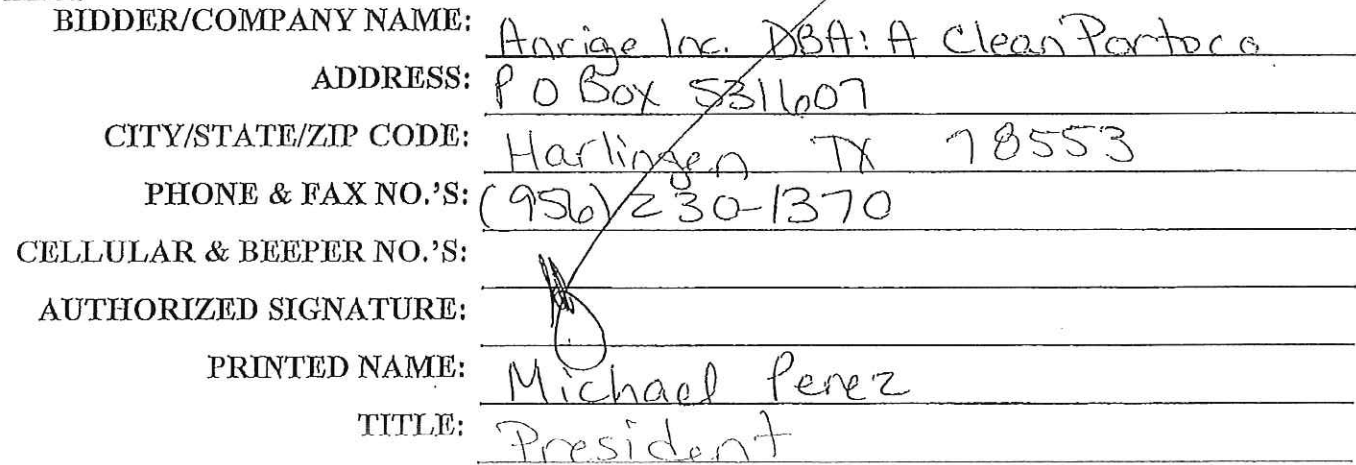 BIDDER/COMPANY NAME: Anrige Inc. DBA: A Clean Portoco
ADDRESS: P O Box 531607
CITY/STATE/ZIP CODE: Harlingen TX 78553
PHONE & FAX NO.'S: (956) 230-1370
CELLULAR & BEEPER NO.'S:
AUTHORIZED SIGNATURE:
PRINTED NAME: Michael Perez
TITLE: President